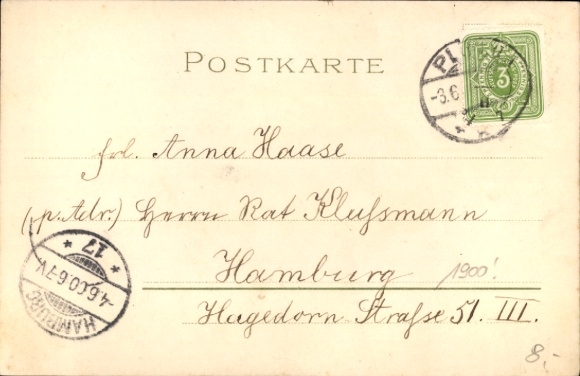 POSTKARTE
3
-3.6
Frl. Anna Haase
(p. Adr.) Herrn Rat Klußmann
Hamburg 1900!
Hagedorn Straße 51. III.
* 17 *
4.6.00.6-7V
HAMBURG
8.-